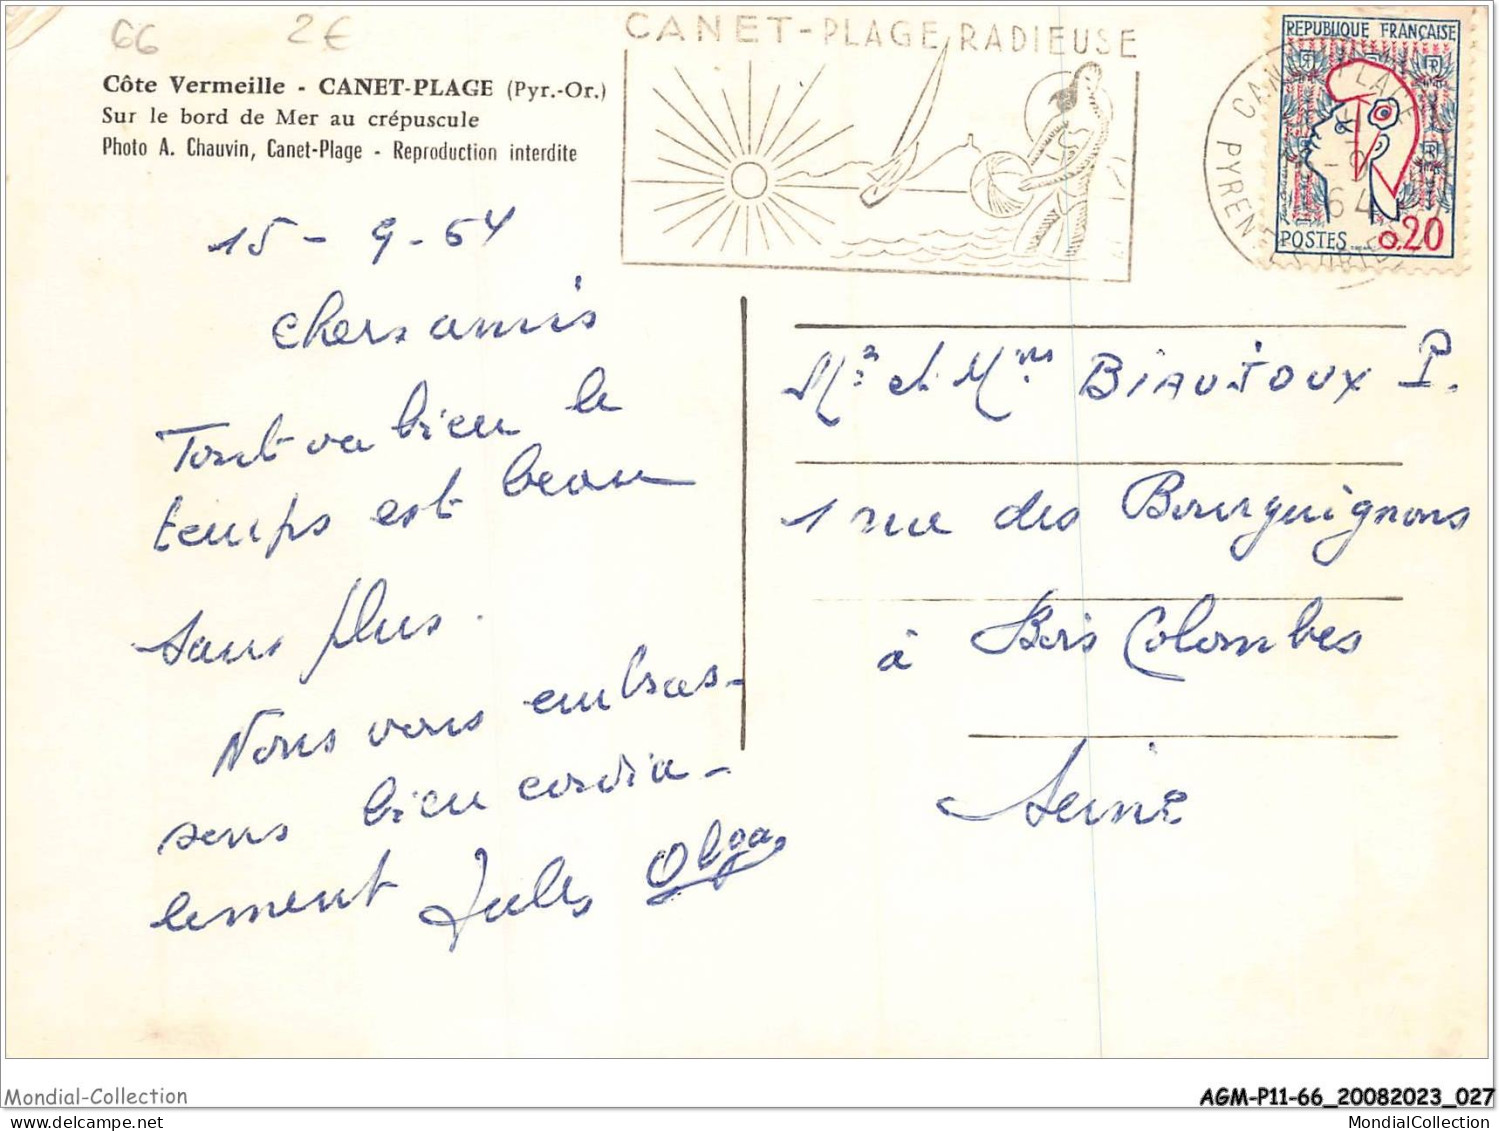 66 2€
CANET-PLAGE RADIEUSE
Côte Vermeille - CANET-PLAGE (Pyr.-Or.)
Sur le bord de Mer au crépuscule
Photo A. Chauvin, Canet-Plage - Reproduction interdite
REPUBLIQUE FRANÇAISE
POSTES 0,20
CANET PLAGE
64
15-9-64
Chers amis
Tout va bien le
temps est beau
sans plus.
Nous vous embras-
sons bien cordia-
lement Jules Olga
Mr et Mme BIAUJOUX P.
1 rue des Bourguignons
à Bois Colombes
Seine
Mondial-Collection
AGM-P11-66_20082023_027
MondialCollection